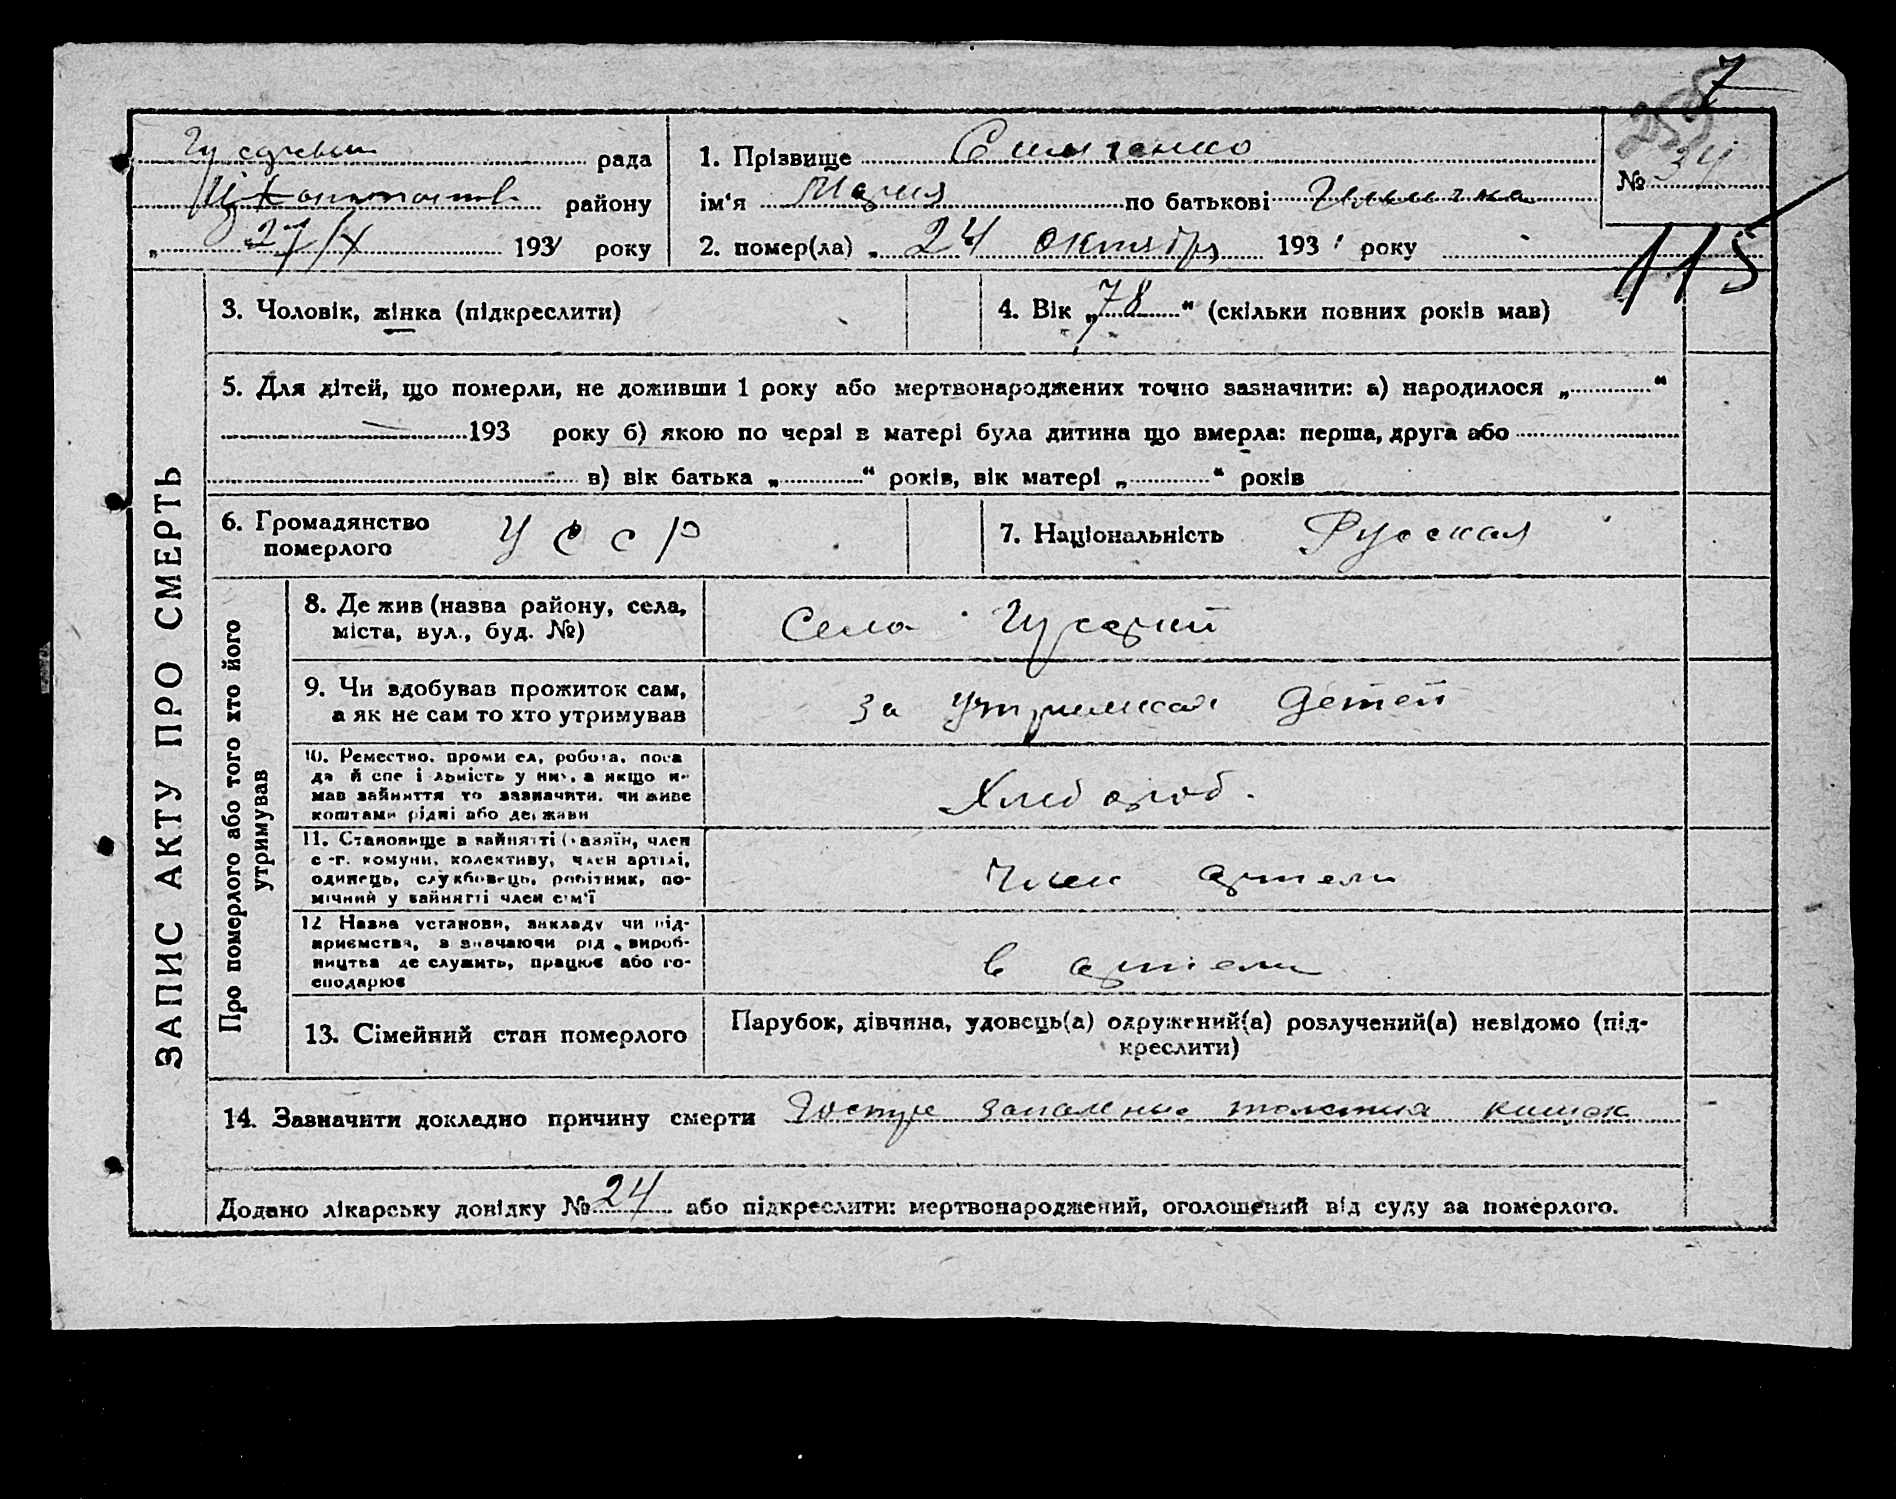 7
259
рада
1. Прізвище
№ 34
району
ім'я Мария по батькові
„ 27/X 1931 року
2. помер(ла) „ 24 октября 1931 року
115
ЗАПИС АКТУ ПРО СМЕРТЬ
3. Чоловік, жінка (підкреслити)
4. Вік „ 78 “ (скільки повних років мав)
5. Для дітей, що померли, не доживши 1 року або мертвонароджених точно зазначити: а) народилося „ “
193 року б) якою по черзі в матері була дитина що вмерла: перша, друга або
в) вік батька „ “ років, вік матері „ “ років
6. Громадянство
померлого
УССР
7. Національність Русская
Про померлого або того хто його
утримував
8. Де жив (назва району, села,
міста, вул., буд. №)
Село
9. Чи здобував прожиток сам,
а як не сам то хто утримував
за детей
10. Ремество, промисел, робота, поса
да й спеціяльність у них, а якщо н-
мав зайняття то зазначити, чи живе
коштами рідні або держави
Хлебороб.
11. Становище в зайнятті (хазяїн, член
с-г. комуни, колективу, член артілі,
одинець, службовець, робітник, по-
мічний у зайнятті член сім'ї
Член артели
12 Назва установи, закладу чи під-
приємства, зазначаючи рід вироб-
ництва де служить, працює або го-
сподарює
в артели
13. Сімейний стан померлого
Парубок, дівчина, удовець(а) одружений(а) розлучений(а) невідомо (під-
креслити)
14. Зазначити докладно причину смерти кишок
Додано лікарську довідку № 24 або підкреслити: мертвонароджений, оголошений від суду за померлого.